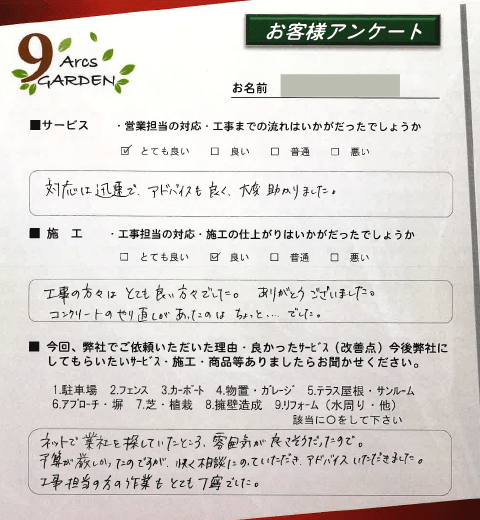 9 Arcs GARDEN
お客様アンケート
お名前
■サービス ・営業担当の対応・工事までの流れはいかがだったでしょうか
☑ とても良い □ 良い □ 普通 □ 悪い
対応は迅速で、アドバイスも良く、大変助かりました。
■施 工 ・工事担当の対応・施工の仕上がりはいかがだったでしょうか
□ とても良い ☑ 良い □ 普通 □ 悪い
工事の方々はとても良い方々でした。 ありがとうございました。
コンクリートのやり直しがあったのはちょっと…でした。
■ 今回、弊社でご依頼いただいた理由・良かったサービス（改善点）今後弊社に
してもらいたいサービス・施工・商品等ありましたらお聞かせください。
1.駐車場 2.フェンス 3.カーポート 4.物置・ガレージ 5.テラス屋根・サンルーム
6.アプローチ・塀 7.芝・植栽 8.擁壁造成 9.リフォーム（水周り・他）
該当に○をして下さい
ネットで業社を探していたところ、雰囲気が良さそうだったので。
予算が厳しかったのですが、快く相談にのっていただき、アドバイスいただきました。
工事担当の方の作業もとても丁寧でした。